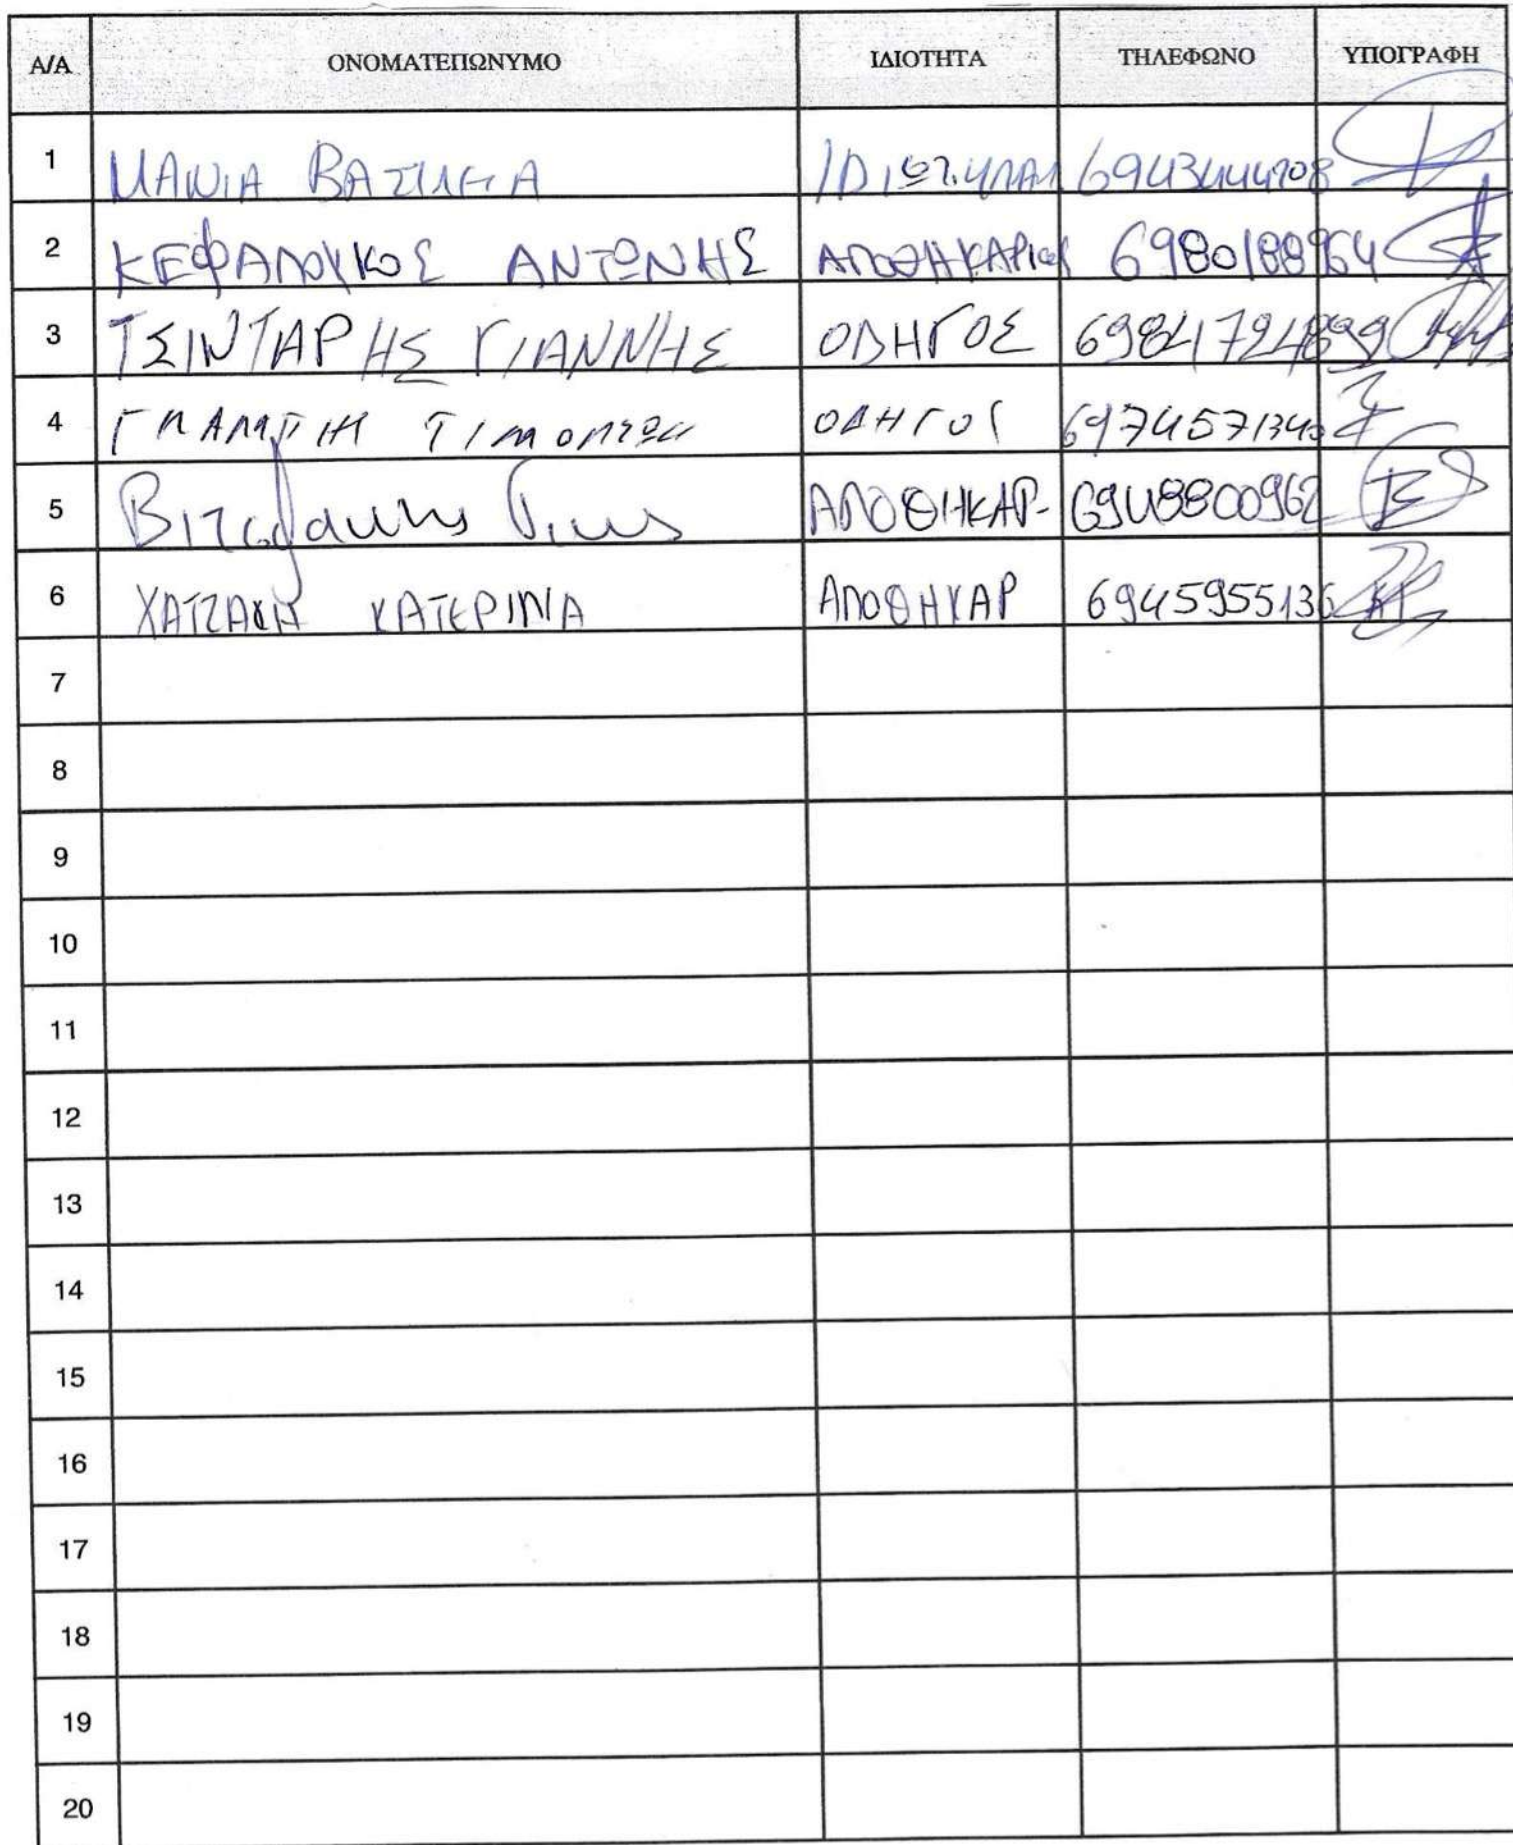 Α/Α ΟΝΟΜΑΤΕΠΩΝΥΜΟ ΙΔΙΟΤΗΤΑ ΤΗΛΕΦΩΝΟ ΥΠΟΓΡΑΦΗ
1 ΜΑΝΙΑ ΒΑΣΙΛΕΙΑ ΙΔΙΩΤ.ΥΠΑΛ
2 ΚΕΦΑΛΟΥΚΟΣ ΑΝΤΩΝΗΣ ΑΠΟΘΗΚΑΡΙΟΣ 6980188964
3 ΤΣΙΝΤΑΡΗΣ ΓΙΑΝΝΗΣ ΟΔΗΓΟΣ 69841724899
4 ΟΔΗΓΟΣ 6974571340
5 ΑΠΟΘΗΚΑΡ- 6948800962
6 ΧΑΤΖΑΚΗ ΚΑΤΕΡΙΝΑ ΑΠΟΘΗΚΑΡ 6945955136
7
8
9
10
11
12
13
14
15
16
17
18
19
20